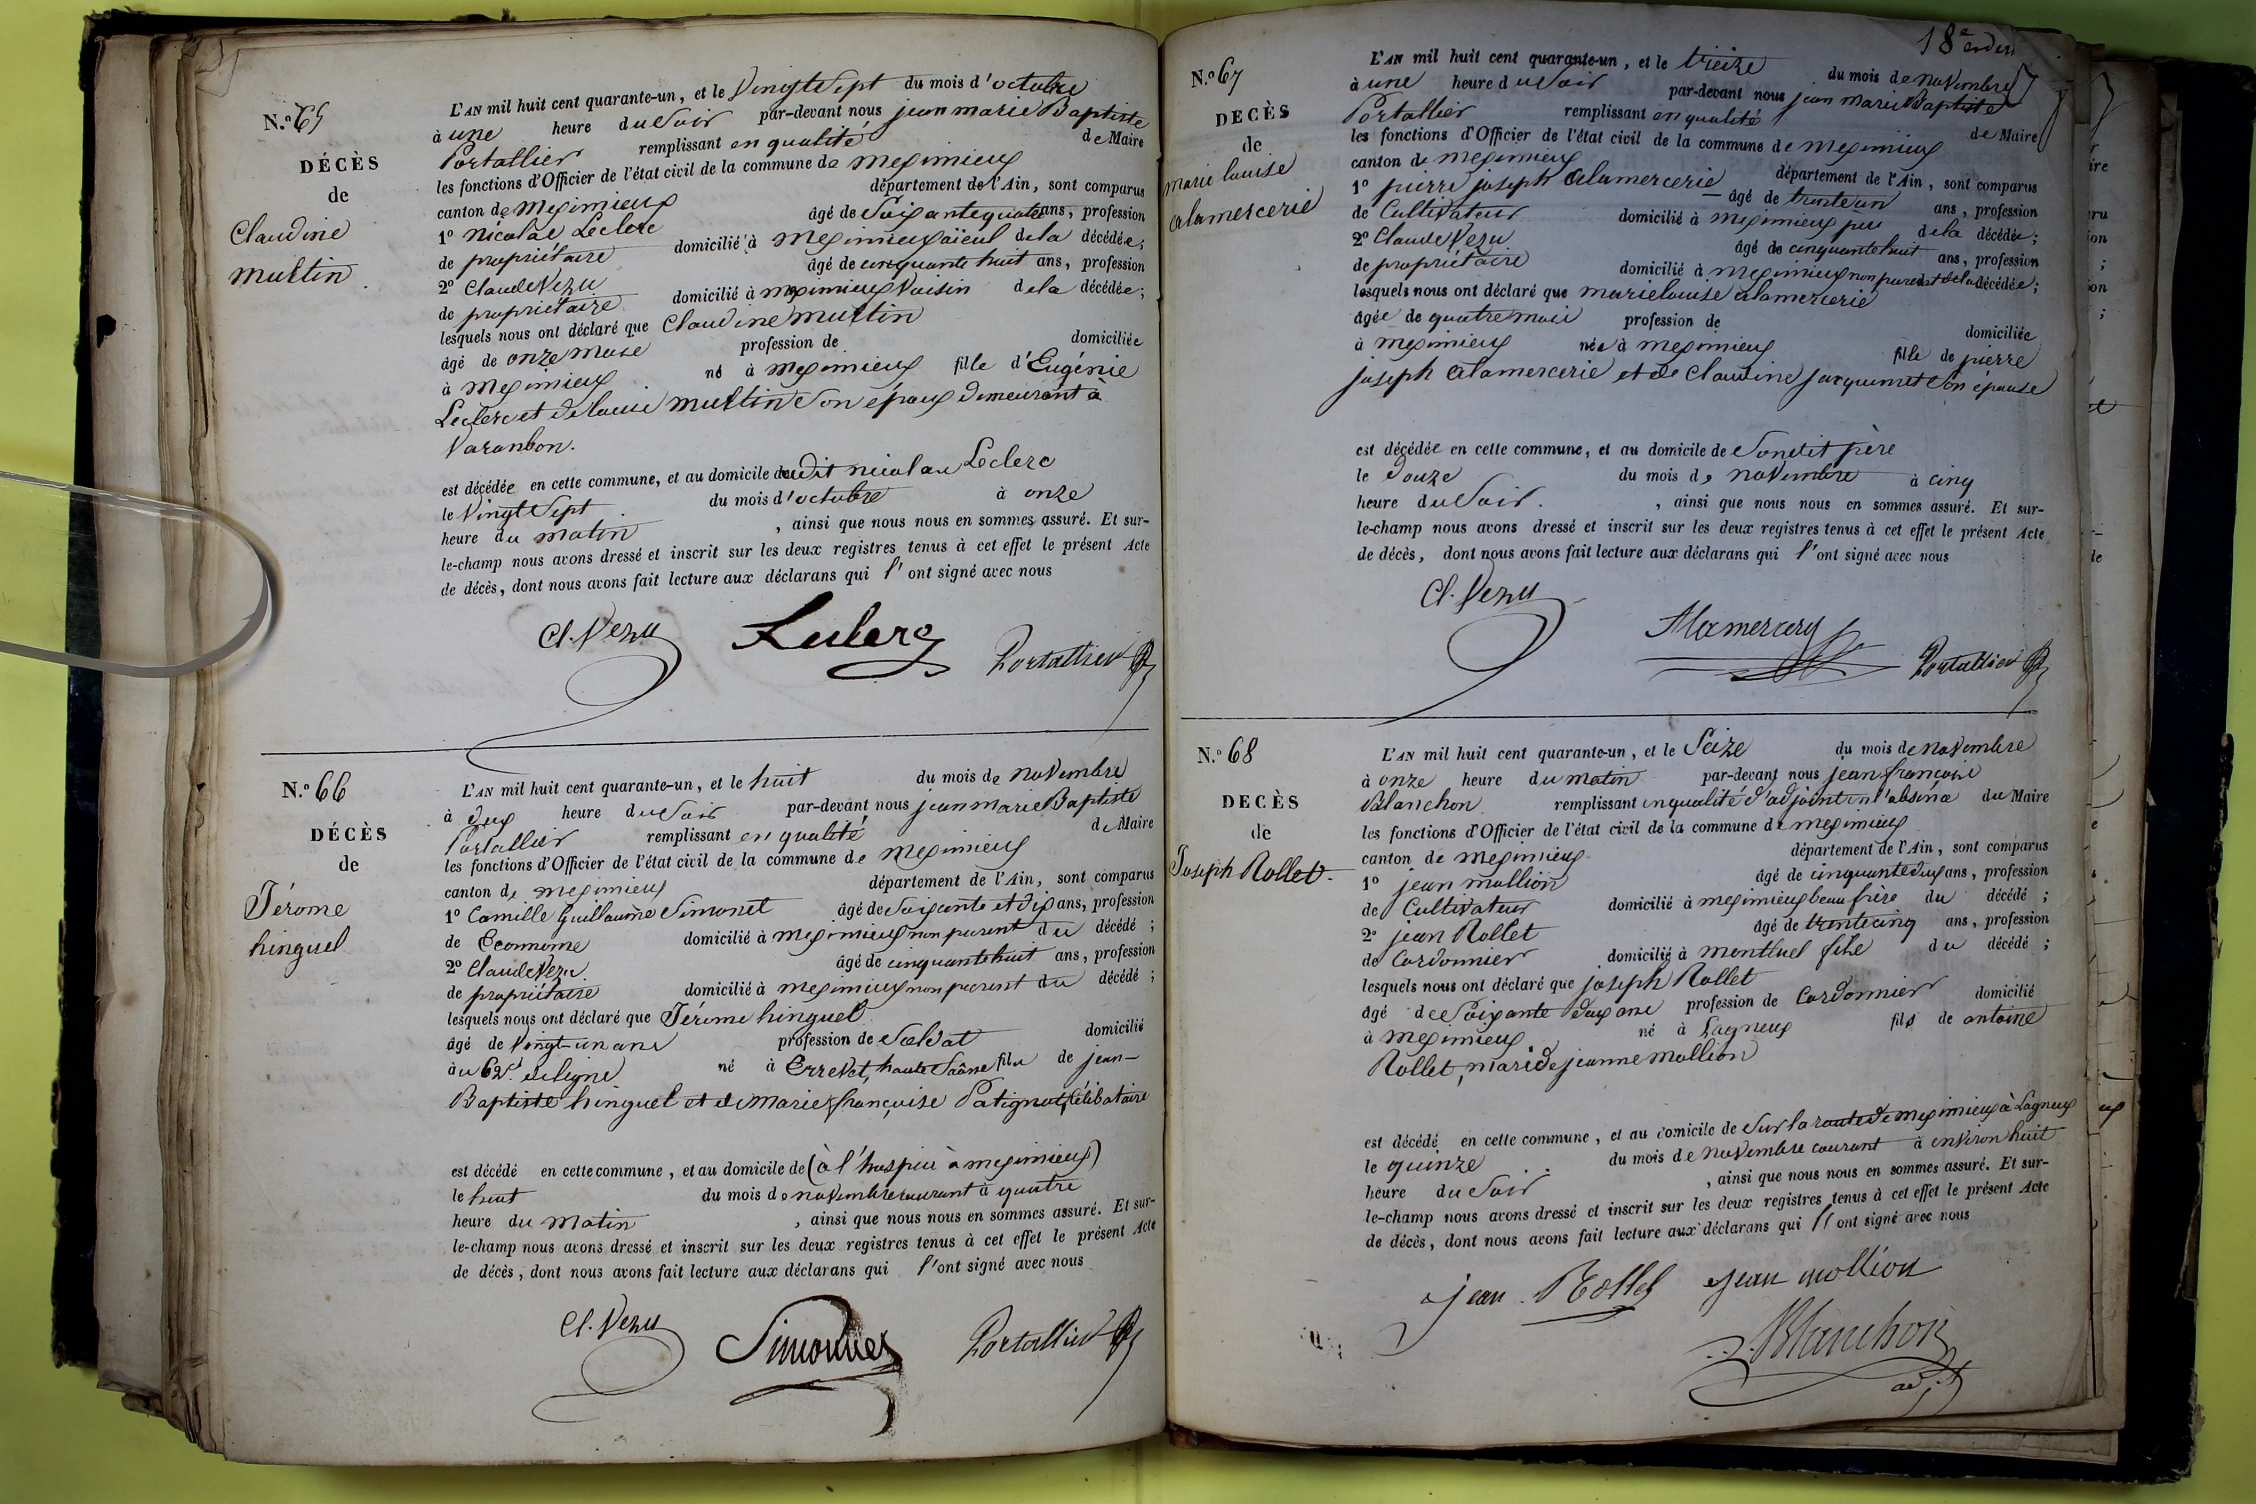 N.º 65
DÉCÈS
de
Claudine
Multin
L'AN mil huit cent quarante-un, et le Vingt Sept du mois d'octobre
à une heure du Soir par-devant nous jean marie Baptiste
Portallier remplissant en qualité de Maire
les fonctions d'Officier de l'état civil de la commune de meximieux
canton de meximieux département de l'Ain, sont comparus
1º nicolas Leclerc âgé de Soixante quatre ans, profession
de propriétaire domicilié à meximieux aïeul de la décédée;
2º Claude Vezu âgé de cinquante huit ans, profession
de propriétaire domicilié à meximieux Voisin de la décédée;
lesquels nous ont déclaré que Claudine multin
âgé de onze mois profession de domiciliée
à meximieux né à meximieux fille d'Eugénie
Leclerc et de louis multin Son époux demeurant à
Varanbon.
est décédée en cette commune, et au domicile dudit nicolas Leclerc
le Vingt Sept du mois d'octobre à onze
heure du matin, ainsi que nous nous en sommes assuré. Et sur-
le-champ nous avons dressé et inscrit sur les deux registres tenus à cet effet le présent Acte
de décès, dont nous avons fait lecture aux déclarans qui l'ont signé avec nous
Cl. Vezu Leclerc Portallier
N.º 66
DÉCÈS
de
Jérome
hinguel
L'AN mil huit cent quarante-un, et le huit du mois de novembre
à deux heure du Soir par-devant nous jean marie Baptiste
Portallier remplissant en qualité de Maire
les fonctions d'Officier de l'état civil de la commune de meximieux
canton de meximieux département de l'Ain, sont comparus
1º Camille Guillaume Simonet âgé de Soixante et dix ans, profession
de Econnome domicilié à meximieux non parent du décédé;
2º Claude Vezu âgé de cinquante huit ans, profession
de propriétaire domicilié à meximieux non parent du décédé;
lesquels nous ont déclaré que Jérome hinguel
âgé de Vingt-un ans profession de Soldat domicilié
au 62e. de ligne né à Errevet, haute Saône fils de jean-
Baptiste hinguel et de Marie françoise Patignot, Célibataire
est décédé en cette commune, et au domicile de (à l'hospice à meximieux)
le huit du mois de novembre courant à quatre
heure du matin, ainsi que nous nous en sommes assuré. Et sur-
le-champ nous avons dressé et inscrit sur les deux registres tenus à cet effet le présent Acte
de décès, dont nous avons fait lecture aux déclarans qui l'ont signé avec nous
Cl. Vezu Simonnet Portallier
18e
N.º 67
DECÈS
de
marie louise
alamercerie
L'AN mil huit cent quarante-un, et le treize du mois de novembre
à une heure du Soir par-devant nous jean marie Baptiste
Portallier remplissant en qualité de Maire
les fonctions d'Officier de l'état civil de la commune de meximieux
canton de meximieux département de l'Ain, sont comparus
1º pierre joseph alamercerie âgé de trente un ans, profession
de Cultivateur domicilié à meximieux père de la décédée;
2º Claude Vezu âgé de cinquante huit ans, profession
de propriétaire domicilié à meximieux non parent de la décédée;
lesquels nous ont déclaré que marie louise alamercerie
âgée de quatre mois profession de domiciliée
à meximieux née à meximieux fille de pierre
joseph alamercerie et de Claudine jacquemet Son épouse
est décédée en cette commune, et au domicile de Sondit père
le douze du mois de novembre à cinq
heure du Soir., ainsi que nous nous en sommes assuré. Et sur-
le-champ nous avons dressé et inscrit sur les deux registres tenus à cet effet le présent Acte
de décès, dont nous avons fait lecture aux déclarans qui l'ont signé avec nous
Cl. Vezu Alamercery Portallier
N.º 68
DECÈS
de
Joseph Rollet
L'AN mil huit cent quarante-un, et le Seize du mois de novembre
à onze heure du matin par-devant nous jean françois
Blanchon remplissant en qualité d'adjoint en l'absence du Maire
les fonctions d'Officier de l'état civil de la commune de meximieux
canton de meximieux département de l'Ain, sont comparus
1º jean mollion âgé de cinquante deux ans, profession
de Cultivateur domicilié à meximieux beau frère du décédé;
2º jean Rollet âgé de trente cinq ans, profession
de Cordonnier domicilié à montluel fils du décédé;
lesquels nous ont déclaré que joseph Rollet
âgé de Soixante deux ans profession de Cordonnier domicilié
à meximieux né à Lagneux fils de antoine
Rollet, mari de jeanne mollion
est décédé en cette commune, et au domicile de Sur la route de meximieux à Lagneux
le quinze du mois de novembre courant à environ huit
heure du Soir, ainsi que nous nous en sommes assuré. Et sur-
le-champ nous avons dressé et inscrit sur les deux registres tenus à cet effet le présent Acte
de décès, dont nous avons fait lecture aux déclarans qui l'ont signé avec nous
jean Rollet jean mollion
Blanchon
adj.